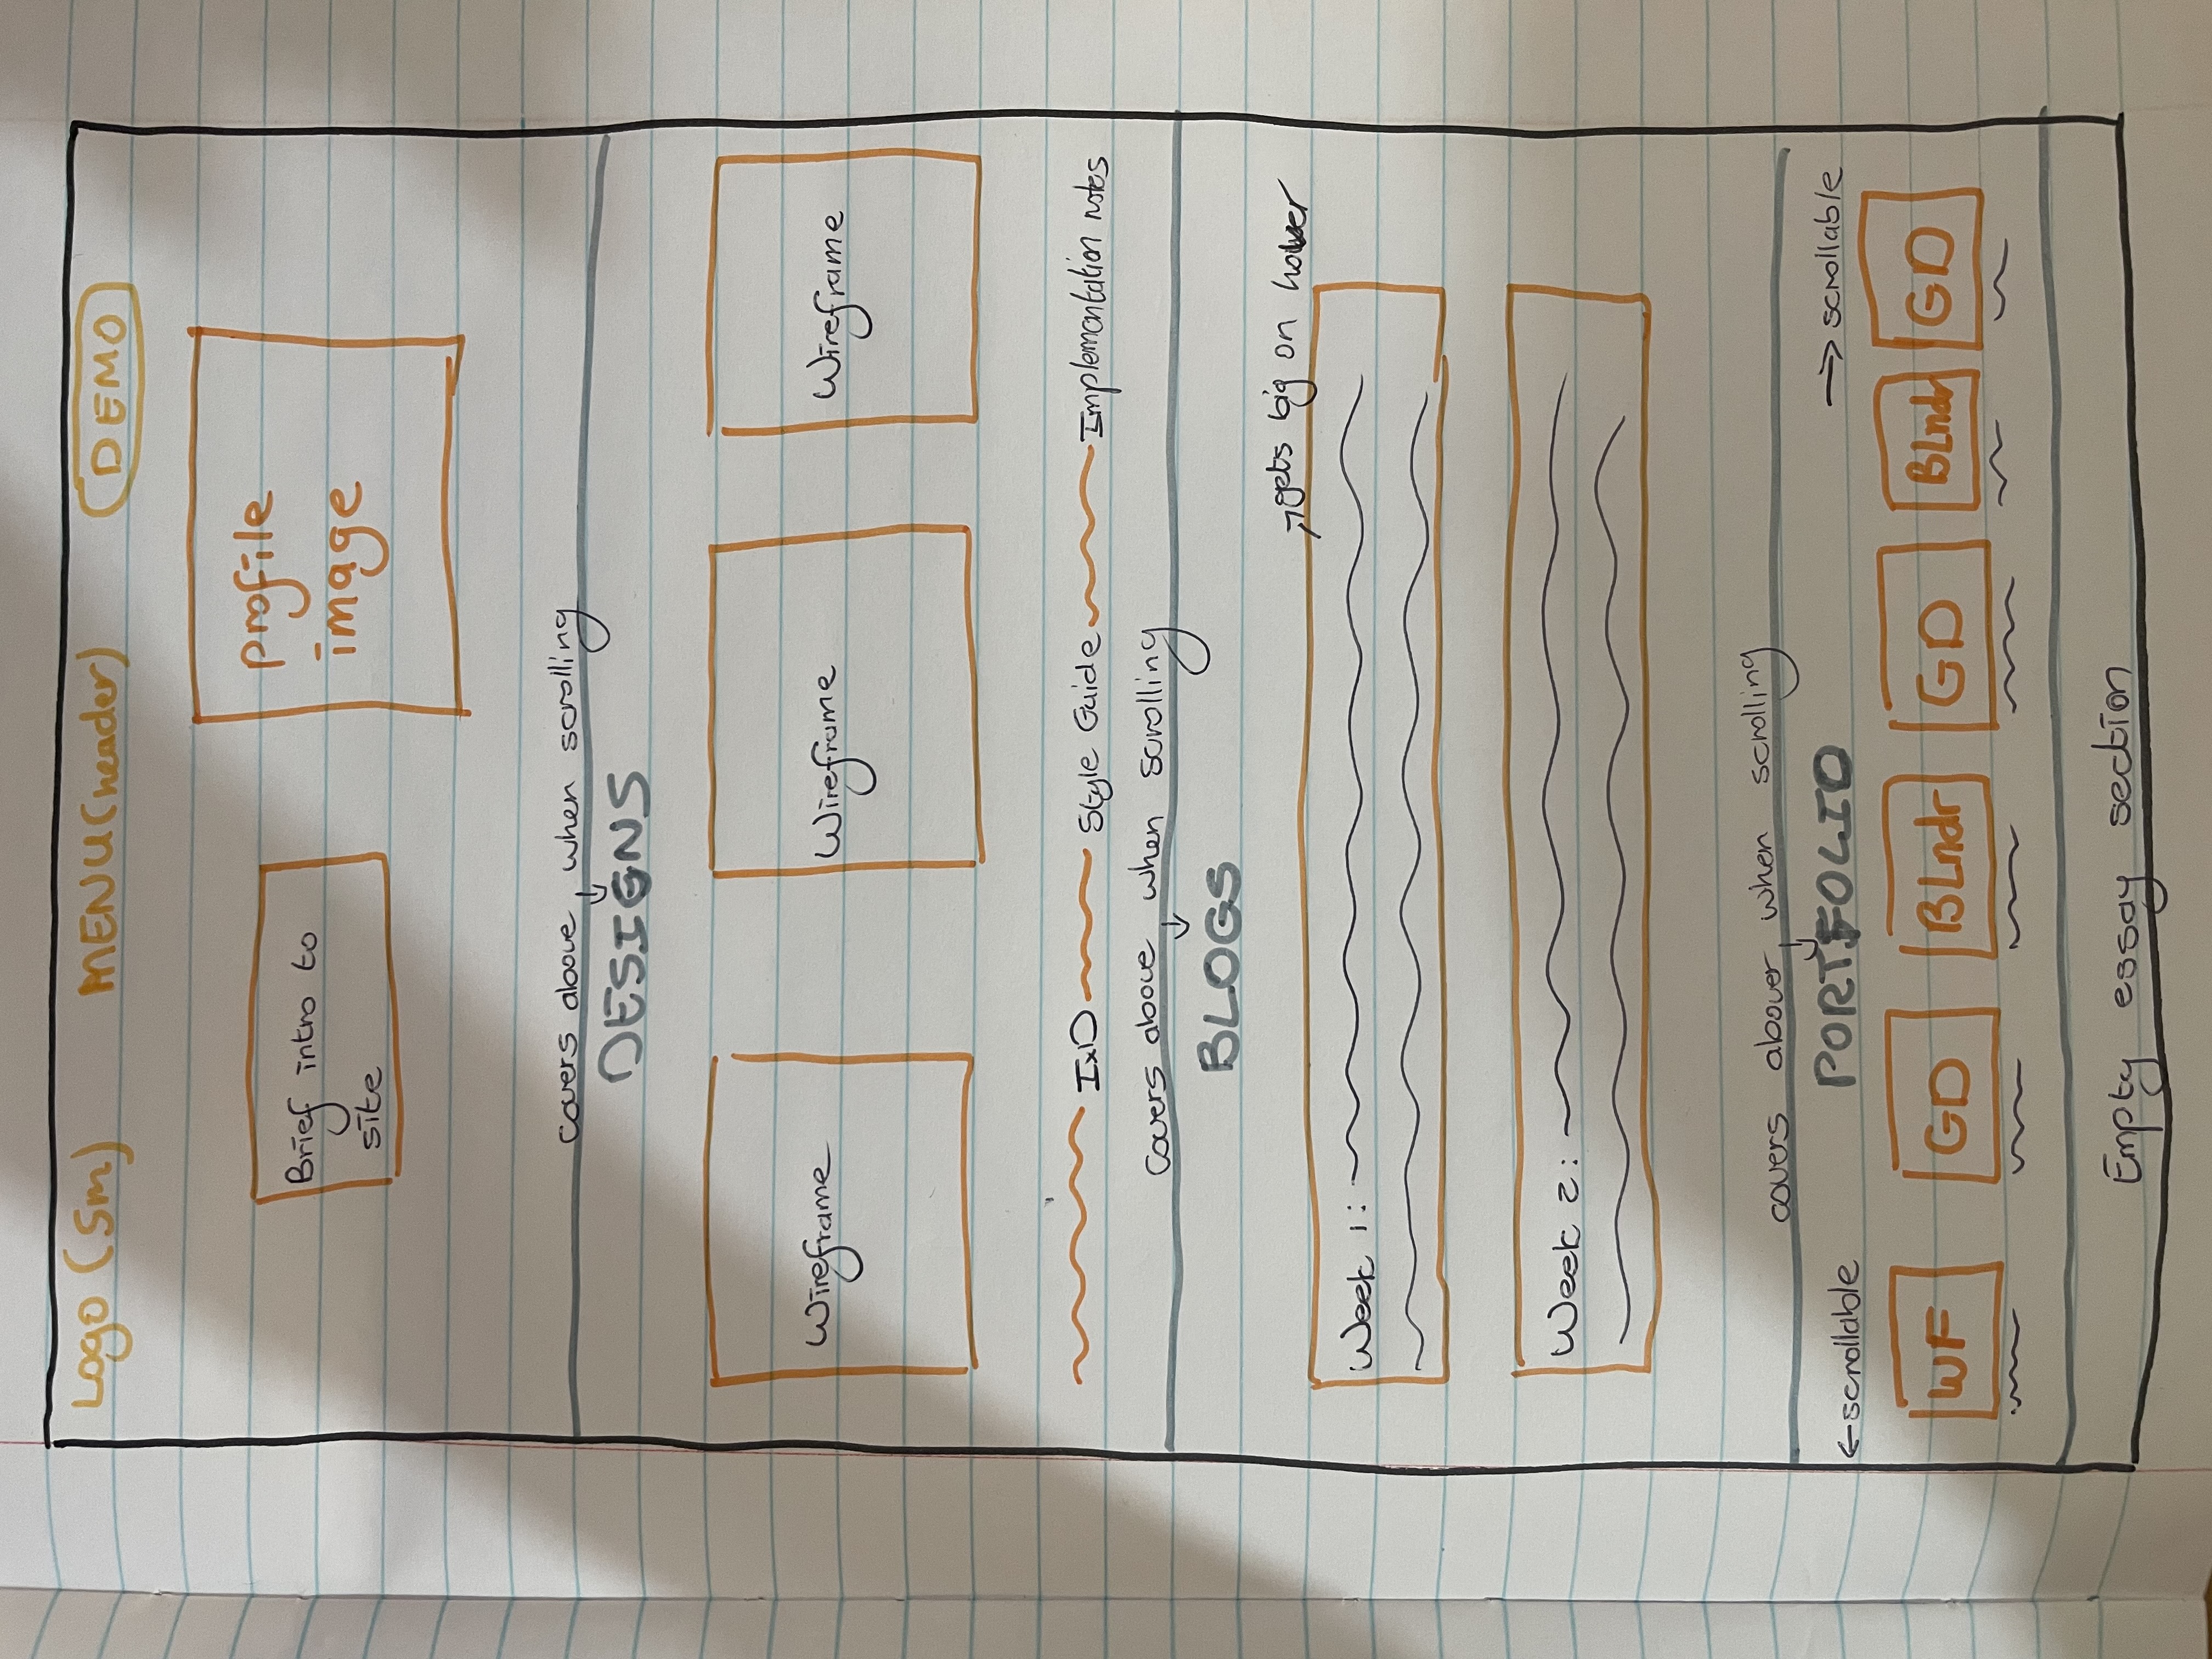 Logo (Sm) MENU (header) DEMO
Brief intro to
site
profile
image
covers above, when scrolling
DESIGNS
Wireframe Wireframe Wireframe
IxD Style Guide Implementation notes
Covers above, when scrolling
BLOGS
gets big on hover
Week 1:
Week 2:
covers abover, when scrolling
PORTFOLIO
←scrollable → scrollable
WF GD BLndr GD BLndr GD
Empty essay section